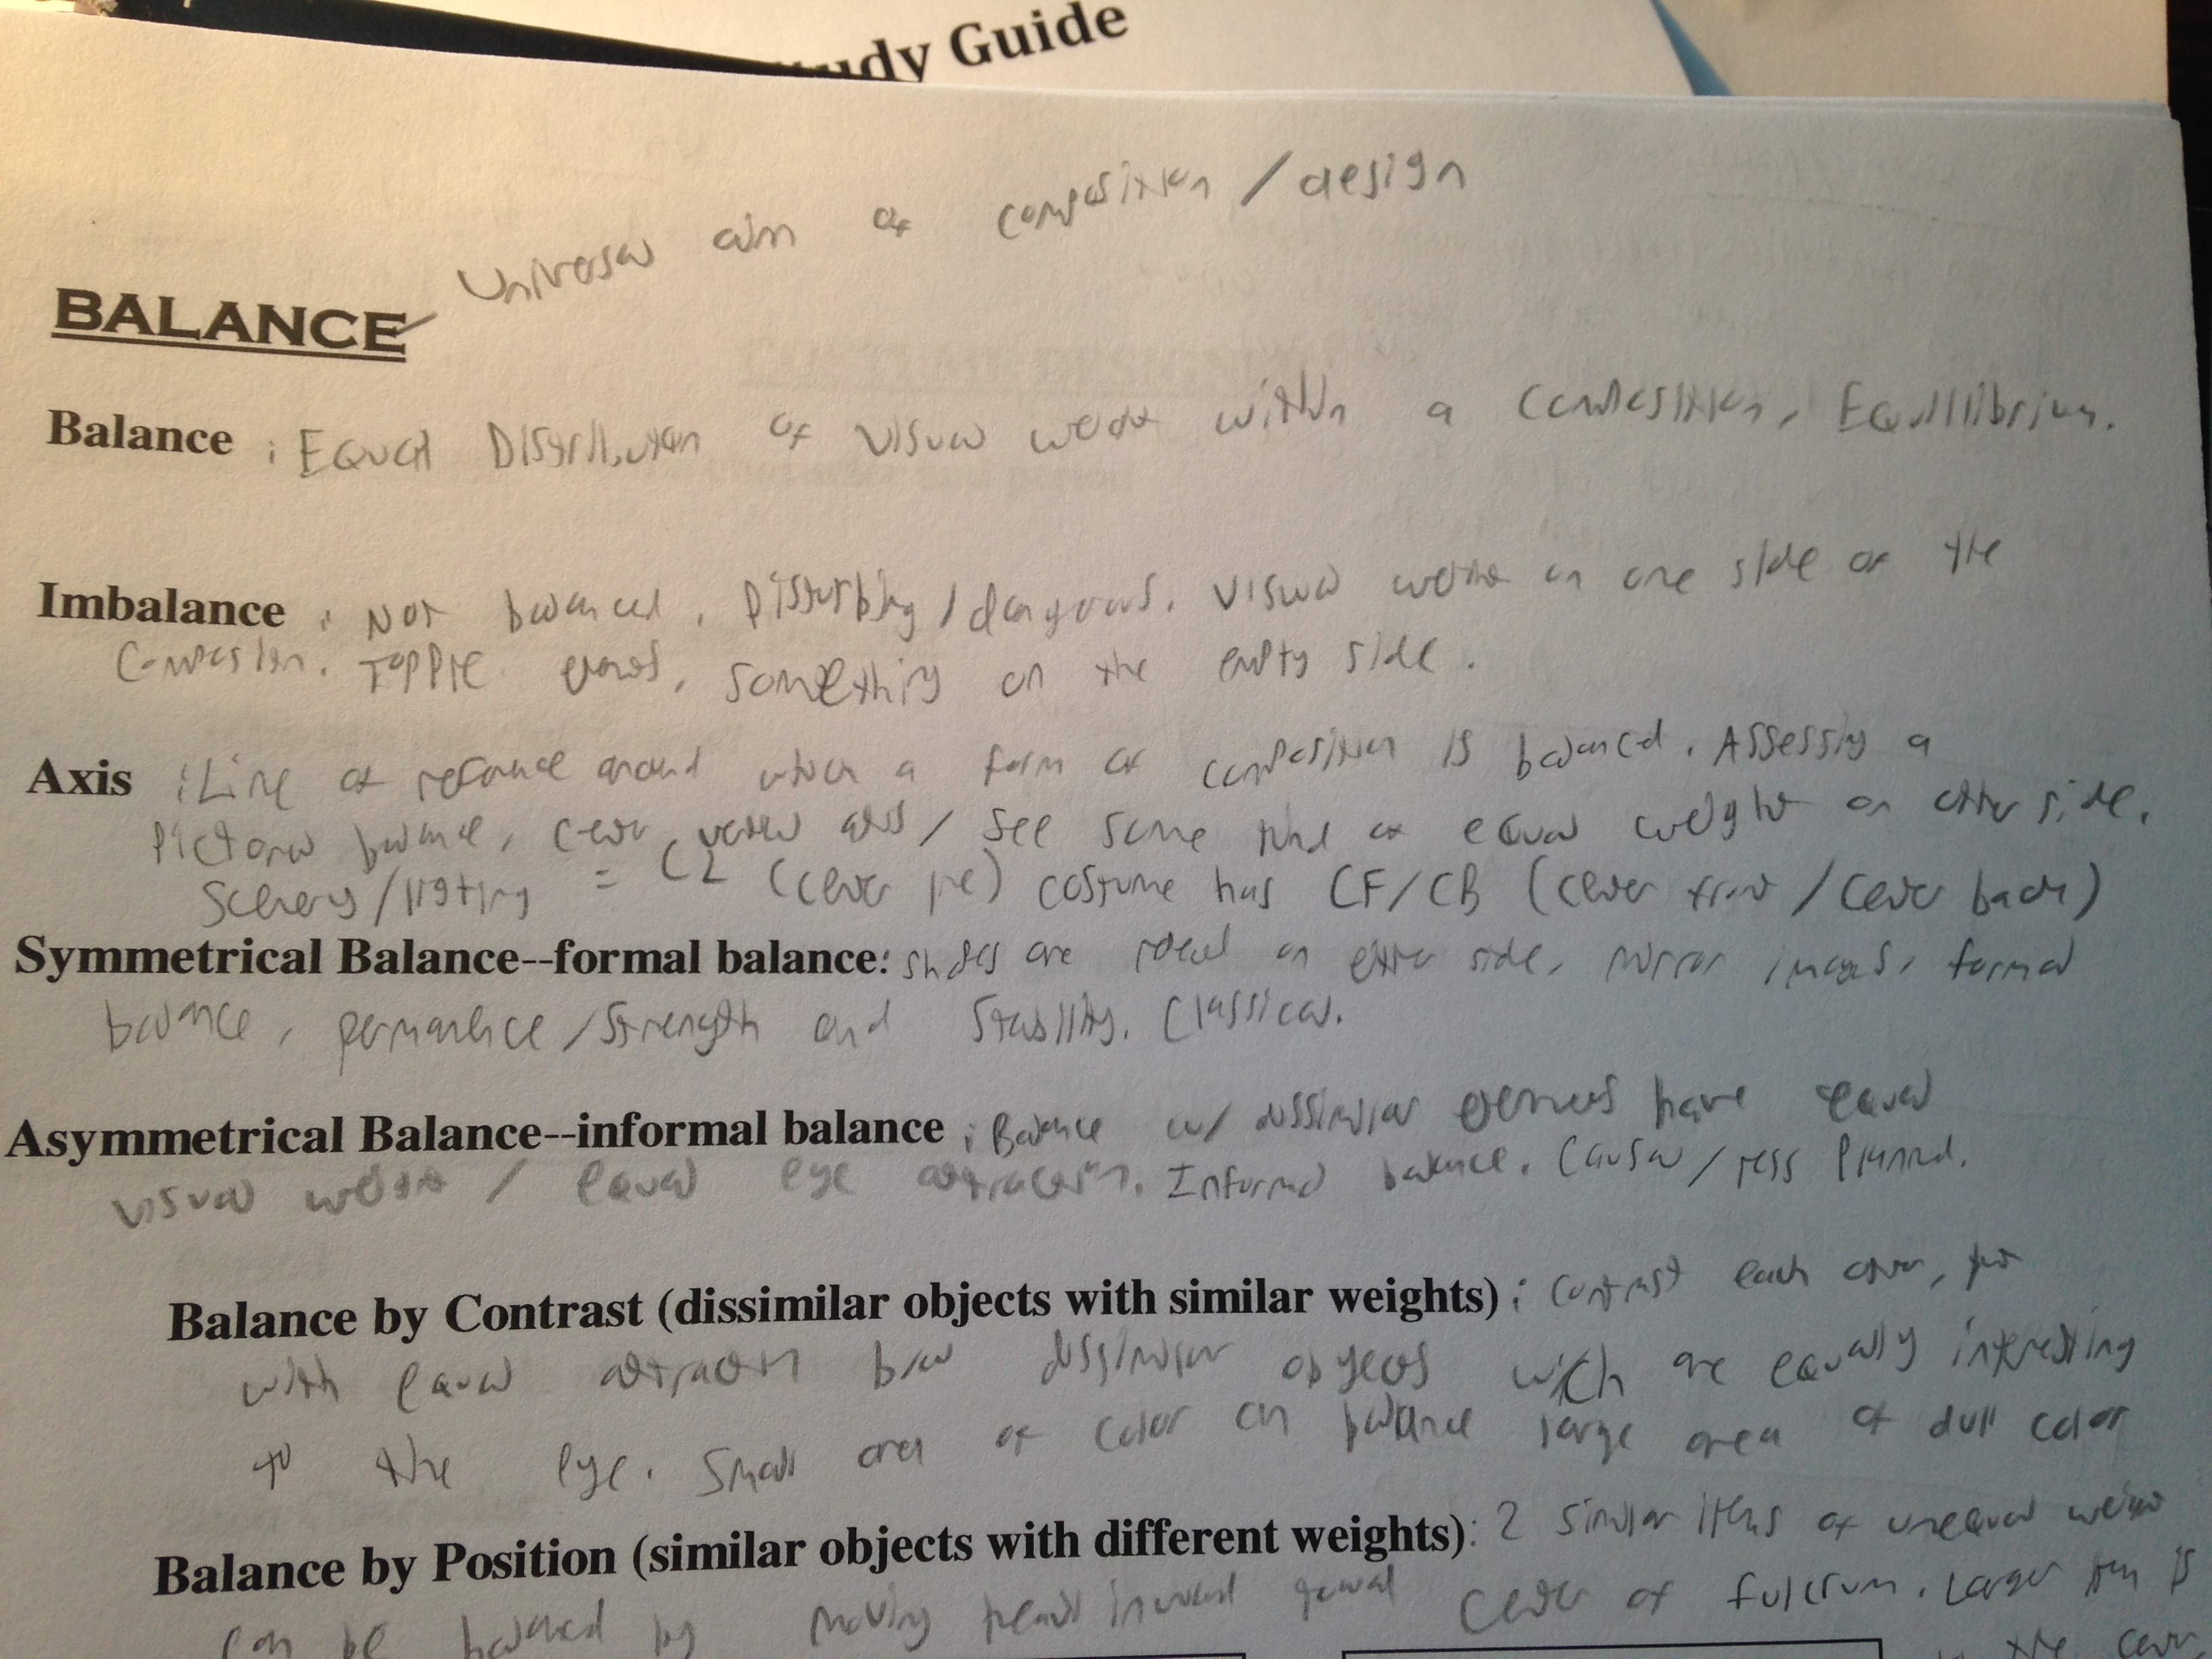 Study Guide
Universal aim of composition / design
BALANCE
Balance : Equal Distribution of visual weight within a composition, Equillibrium.
Imbalance : Not balanced, Disturbing / dangerous. Visual weight on one side of the
Composition. Topple, something on the empty side.
Axis : Line of reference around which a form or composition is balanced. Assessing a
Pictorial balance, center vertical axis / see some kind of equal weight on either side.
Scenery / lighting = CL (center line) costume has CF/CB (center front / center back)
Symmetrical Balance--formal balance: sides are on either side, mirror images, formal
balance, permanence / strength and stability. Classical.
Asymmetrical Balance--informal balance : Balance w/ dissimilar elements have equal
visual weight / equal eye attraction. Informal balance. Causal / less planned.
Balance by Contrast (dissimilar objects with similar weights) : contrast each other,
with equal attraction b/w dissimilar objects which are equally interesting
to the eye. Small area of color can balance large area of dull color
Balance by Position (similar objects with different weights): 2 similar items of unequal weight
can be balanced by moving inward center of fulcrum. Larger item is
to the center